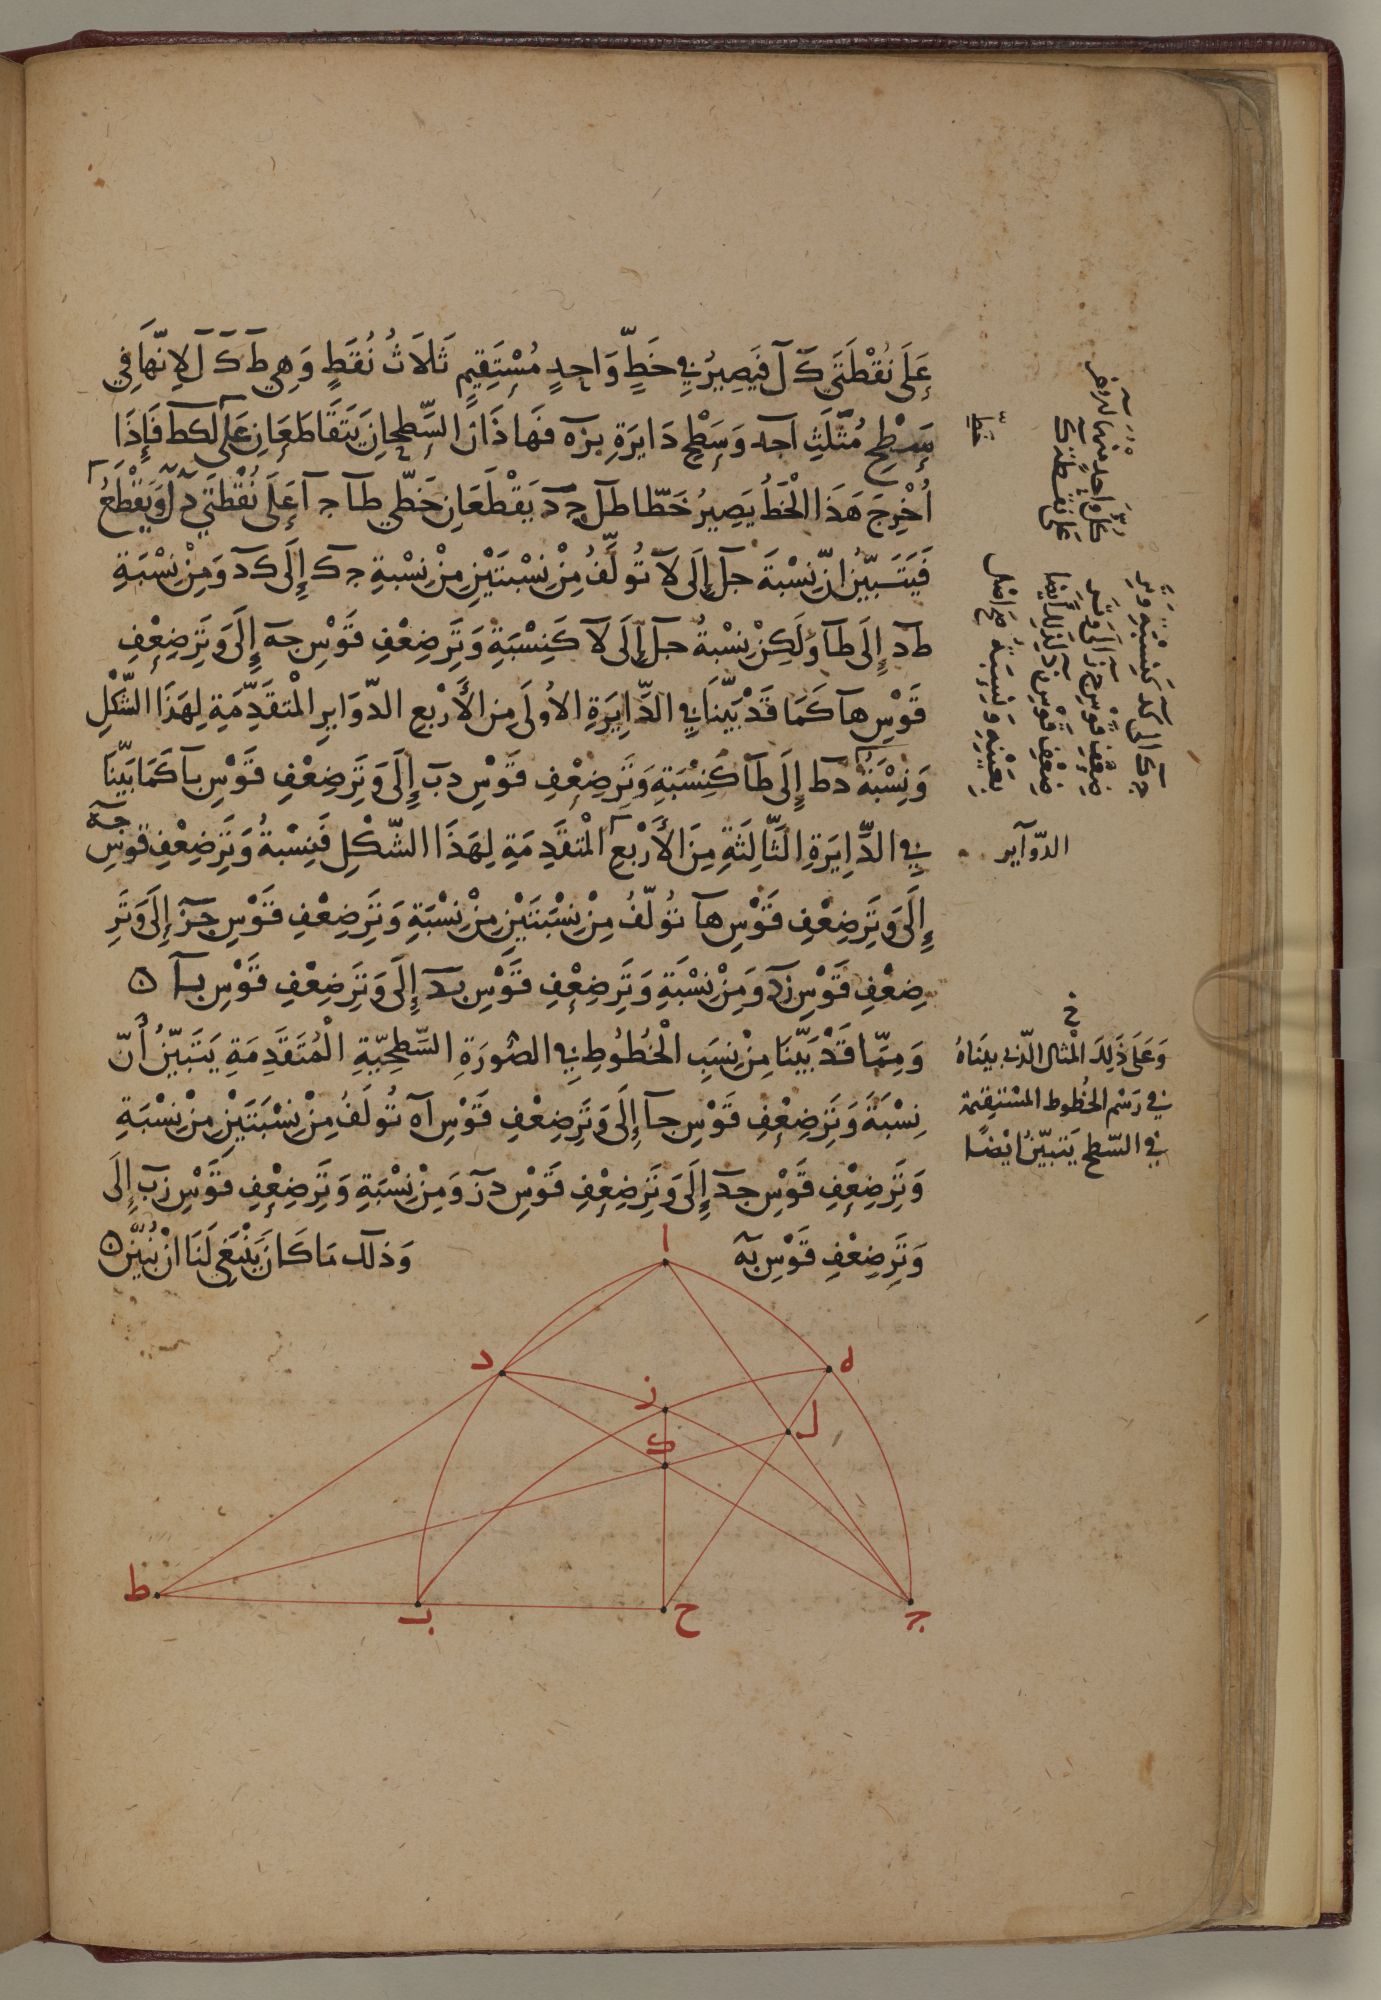 عَلَى نُقْطَتَي كَ لَ فَيَصِيرُ فِي خَطٍّ وَاحِدٍ مُسْتَقِيمٍ ثَلَاثُ نُقَطٍ وَهِي طَ كَ لَ لِانّهَا فِي
سَطْحِ مُثَلَّثِ اجه وَسَطْحِ دَايرَةِ بزه فَهَاذَانِ السَّطْحَانِ يَتَقَاطَعَانِ عَلَى لكط فَإِذَا
أُخْرِجَ هَذَا الْخَطُ يَصِيرُ خَطّا طل جد يَقْطَعَانِ خَطّي طا جا عَلَى نُقْطَتَي دَ لَ وَيَقْطَعُ
فَيَتَبَيّنُ انّ نِسْبَةَ جل إِلَى لا تُولّفُ مِنْ نِسْبَتَيْنِ مِنْ نِسْبةِ جك إِلَى كد وَمِنْ نِسْبَةِ
طد إِلَى طا وَلَكِنْ نِسْبةُ جل إِلَى لا كَنِسْبَةِ وَتَرِ ضِعْفِ قَوْسِ جه إِلَى وَتَرِ ضِعْفِ
قَوْسِ ها كَمَا قَدْ بَيّنَا فِي الدَّايِرَةِ الاُولَى مِن الأَرْبعِ الدّوَايرِ الْمتقَدِّمَةِ لِهَذَا الشّكْلِ
وَنِسْبَةُ دط إِلَى طا كَنِسْبَةِ وَتَرِ ضِعْفِ قَوْسِ دب إِلَى وَتَرِ ضِعْفِ قَوْسِ با كَمَا بَيّنَا
فِي الدَّايِرَةِ الثَّالِثَةِ مِنَ الأَرْبَعِ الْمتقَدِمَةِ لِهَذَا الشّكْلِ فَنِسْبةُ وَتَرِ ضِعْفِ قوسِ جه
إِلَى وَتَرِ ضِعْفِ قَوْسِ ها تُولّفُ مِنْ نِسْبَتَيْنِ مِنْ نِسْبَةِ وَتَرِ ضِعْفِ قَوْسِ جز إِلَى وَتَرِ
ضِعْفِ قَوْسِ زد وَمِنْ نِسْبَةِ وَتَرِ ضِعْفِ قَوْسِ بد إِلَى وَتَرِ ضِعْفِ قَوْسِ با ن
وَمِمّا قَدْ بَيّنَا مِنْ نِسَبِ الْخُطُوطِ فِي الصُّورَةِ السَّطْحِيّةِ الْمُتَقَدِمَةِ يَتَبَيّنُ أَنّ
نِسْبَةَ وَتَرِ ضِعْفِ قَوْسِ جا إِلَى وَتَرِ ضِعْفِ قَوْسِ اه تُولَفُ مِنْ نِسْبَتَيْنِ مِنْ نِسْبَةِ
وَتَرِ ضِعْفِ قَوْسِ جد إِلَى وَتَرِ ضِعْفِ قَوْسِ دز وَمِنْ نِسْبَةِ وَتَرِ ضِعْفِ قَوْسِ زب إِلَى
وَتَرِ ضِعْفِ قَوْسِ به وَذلك مَا كَانَ يَنْبَغِي لَنَا انْ نُبَيّنَ ن
الدّوآير
خ
وَعَلَى ذَلِكَ الْمثال الّذي بيناهُ
في رَسْم الخُطُوط المسْتقيمة
في السّطح يَتبيّنُ ايْضًا
كل واحد منها
على نقطة
جك الى كد كَنِسْبَةِ وتر
ضِعْفِ قَوْسِ جز الى وتر
ضِعْفِ قَوْسِ زد
بعَيْنِهِ وَنِسبَة
ا
د
ه
ز
ل
ك
ط
ب
ح
ج